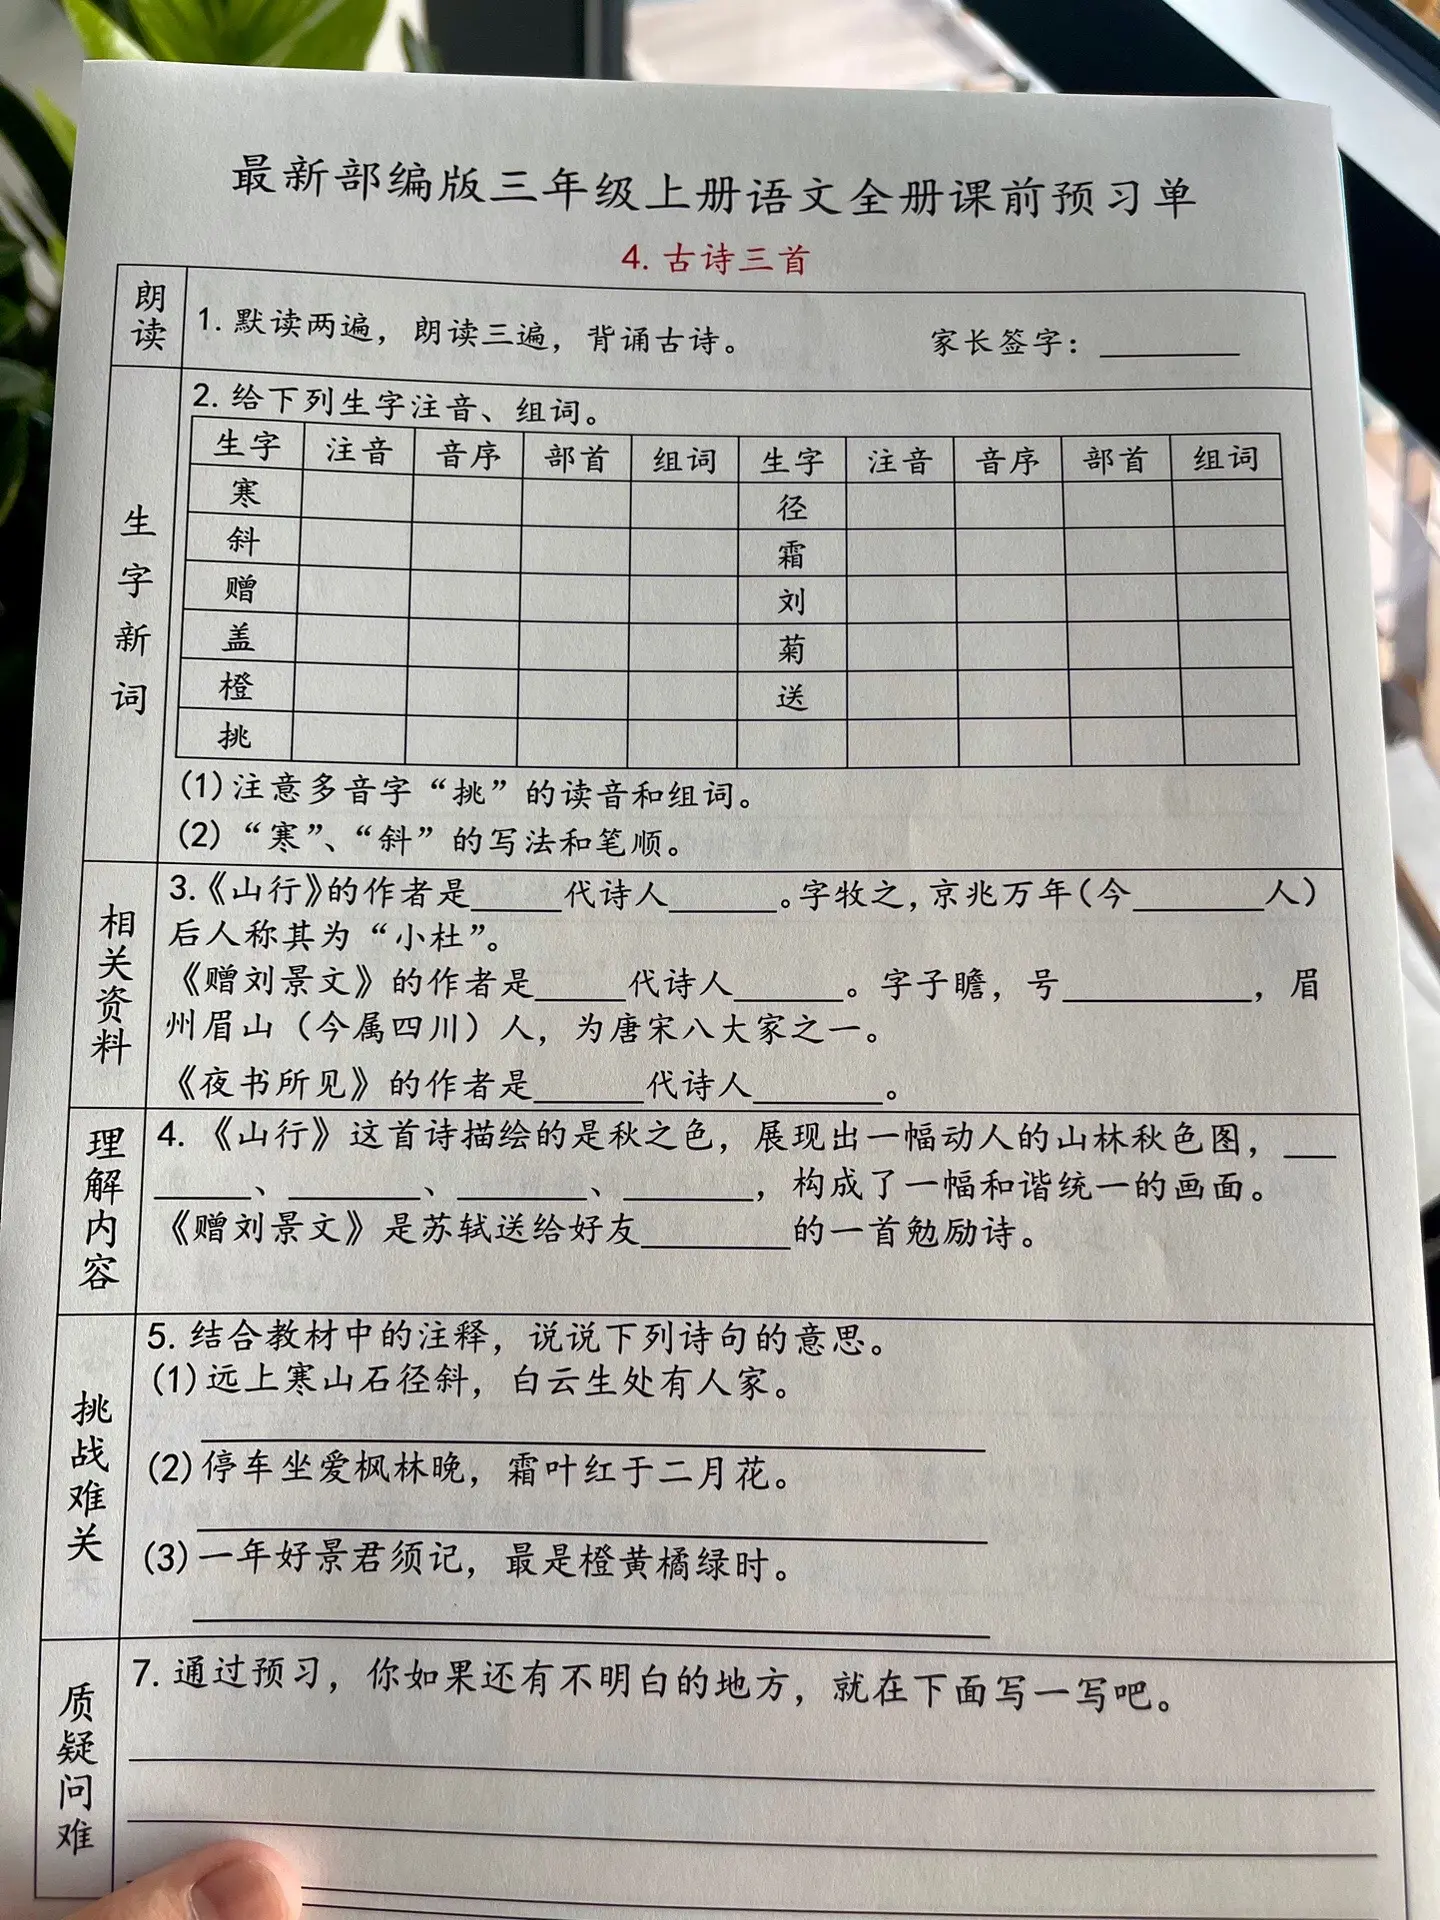 最新部编版三年级上册语文全册课前预习单
4. 古诗三首
朗读
1. 默读两遍，朗读三遍，背诵古诗。 家长签字：________
生字新词
2. 给下列生字注音、组词。
生字 注音 音序 部首 组词 生字 注音 音序 部首 组词
寒 径
斜 霜
赠 刘
盖 菊
橙 送
挑
(1) 注意多音字“挑”的读音和组词。
(2) “寒”、“斜”的写法和笔顺。
相关资料
3.《山行》的作者是_____代诗人______。字牧之，京兆万年（今_______人）
后人称其为“小杜”。
《赠刘景文》的作者是_____代诗人______。字子瞻，号__________，眉
州眉山（今属四川）人，为唐宋八大家之一。
《夜书所见》的作者是______代诗人_______。
理解内容
4. 《山行》这首诗描绘的是秋之色，展现出一幅动人的山林秋色图，___
_____、_______、_______、_______，构成了一幅和谐统一的画面。
《赠刘景文》是苏轼送给好友________的一首勉励诗。
挑战难关
5. 结合教材中的注释，说说下列诗句的意思。
(1) 远上寒山石径斜，白云生处有人家。
(2) 停车坐爱枫林晚，霜叶红于二月花。
(3) 一年好景君须记，最是橙黄橘绿时。
质疑问难
7. 通过预习，你如果还有不明白的地方，就在下面写一写吧。